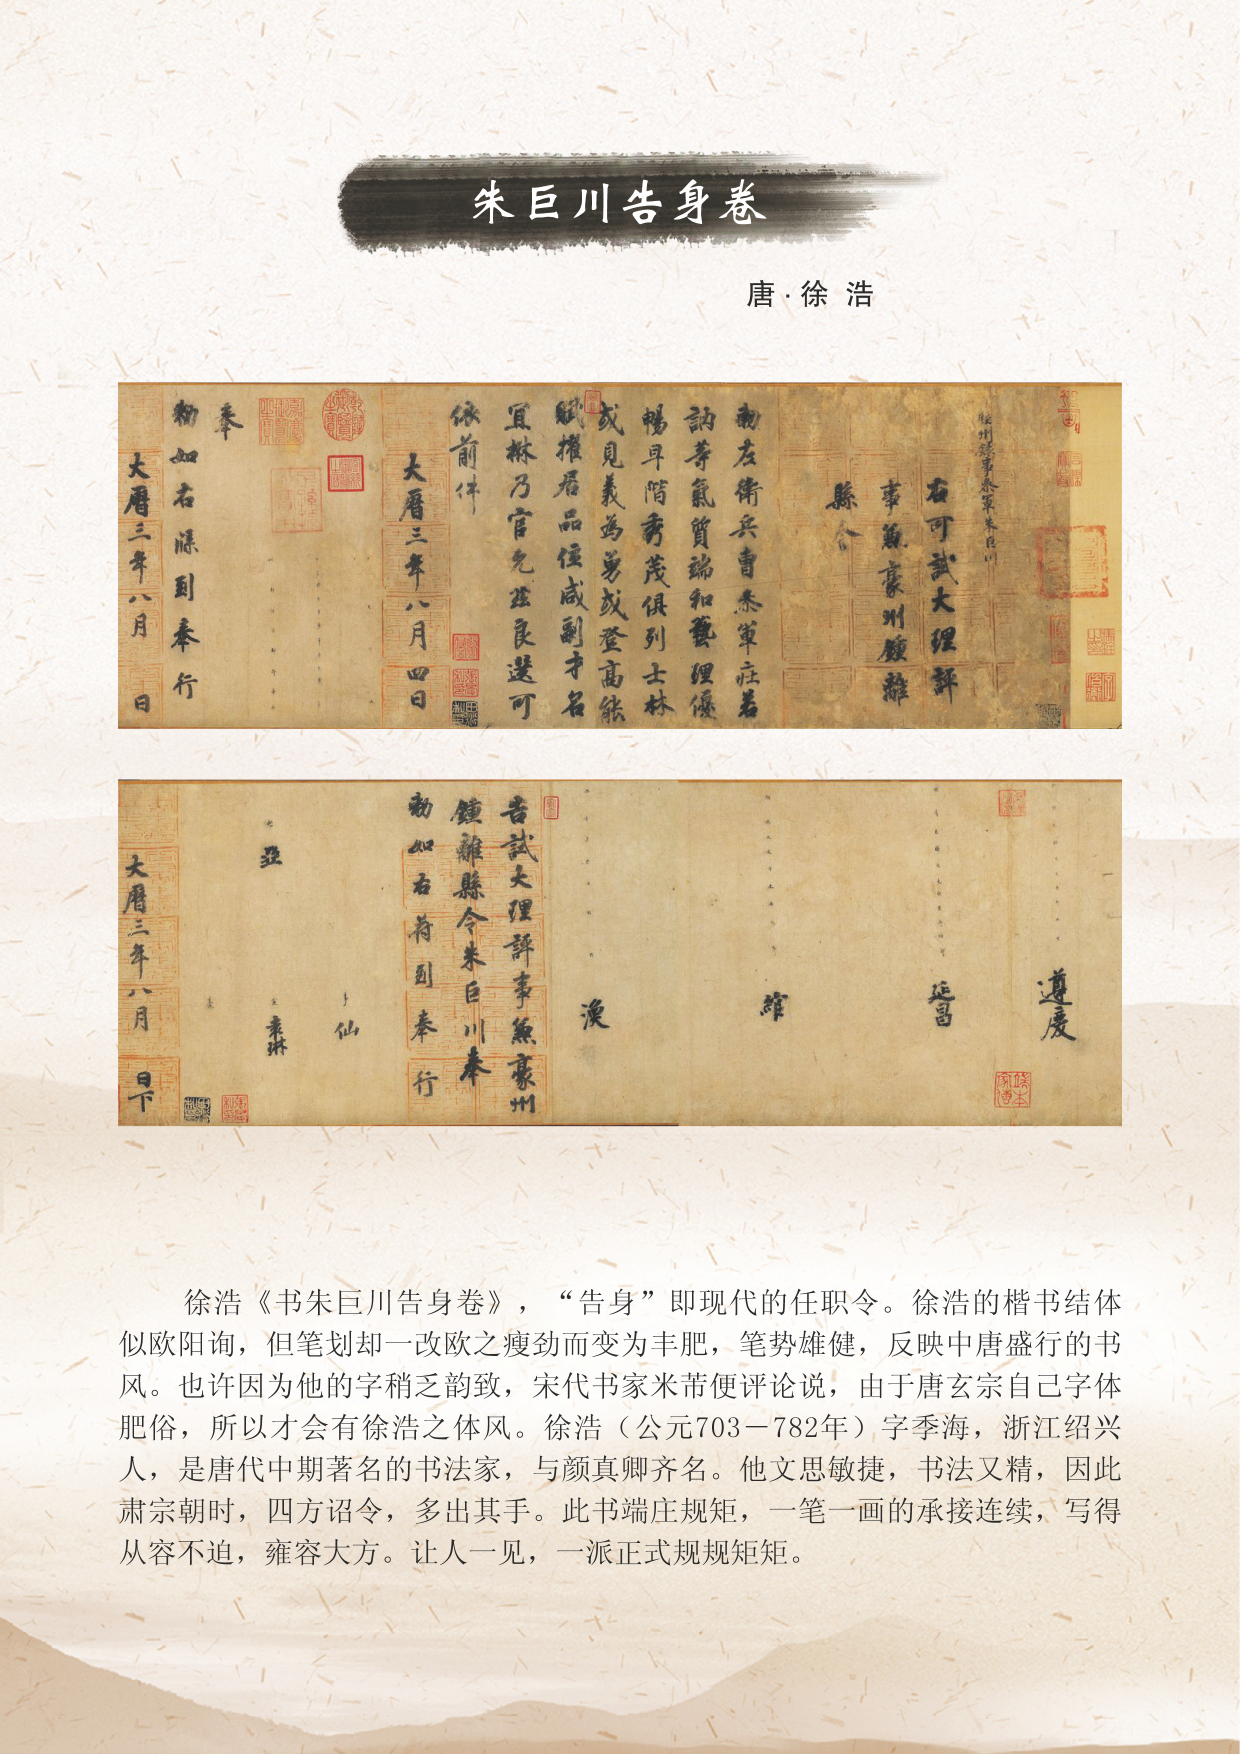 朱巨川告身卷
唐·徐 浩
睦州録事參軍朱巨川
右可試大理評
事兼豪州鍾離
縣令
勑左衛兵曹參軍莊若
訥等氣質端和藝理優
暢早階秀茂俱列士林
或見義為勇或登高能
賦擢居品位咸副才名
宜楙乃官允茲良選可
依前件
大曆三年八月四日
奉
勑如右牒到奉行
大曆三年八月 日
遵慶
延昌
綰
渙
告試大理評事兼豪州
鍾離縣令朱巨川奉
勑如右符到奉行
仙
袁琳
亞
大曆三年八月 日下
徐浩《书朱巨川告身卷》，“告身”即现代的任职令。徐浩的楷书结体
似欧阳询，但笔划却一改欧之瘦劲而变为丰肥，笔势雄健，反映中唐盛行的书
风。也许因为他的字稍乏韵致，宋代书家米芾便评论说，由于唐玄宗自己字体
肥俗，所以才会有徐浩之体风。徐浩（公元703－782年）字季海，浙江绍兴
人，是唐代中期著名的书法家，与颜真卿齐名。他文思敏捷，书法又精，因此
肃宗朝时，四方诏令，多出其手。此书端庄规矩，一笔一画的承接连续，写得
从容不迫，雍容大方。让人一见，一派正式规规矩矩。